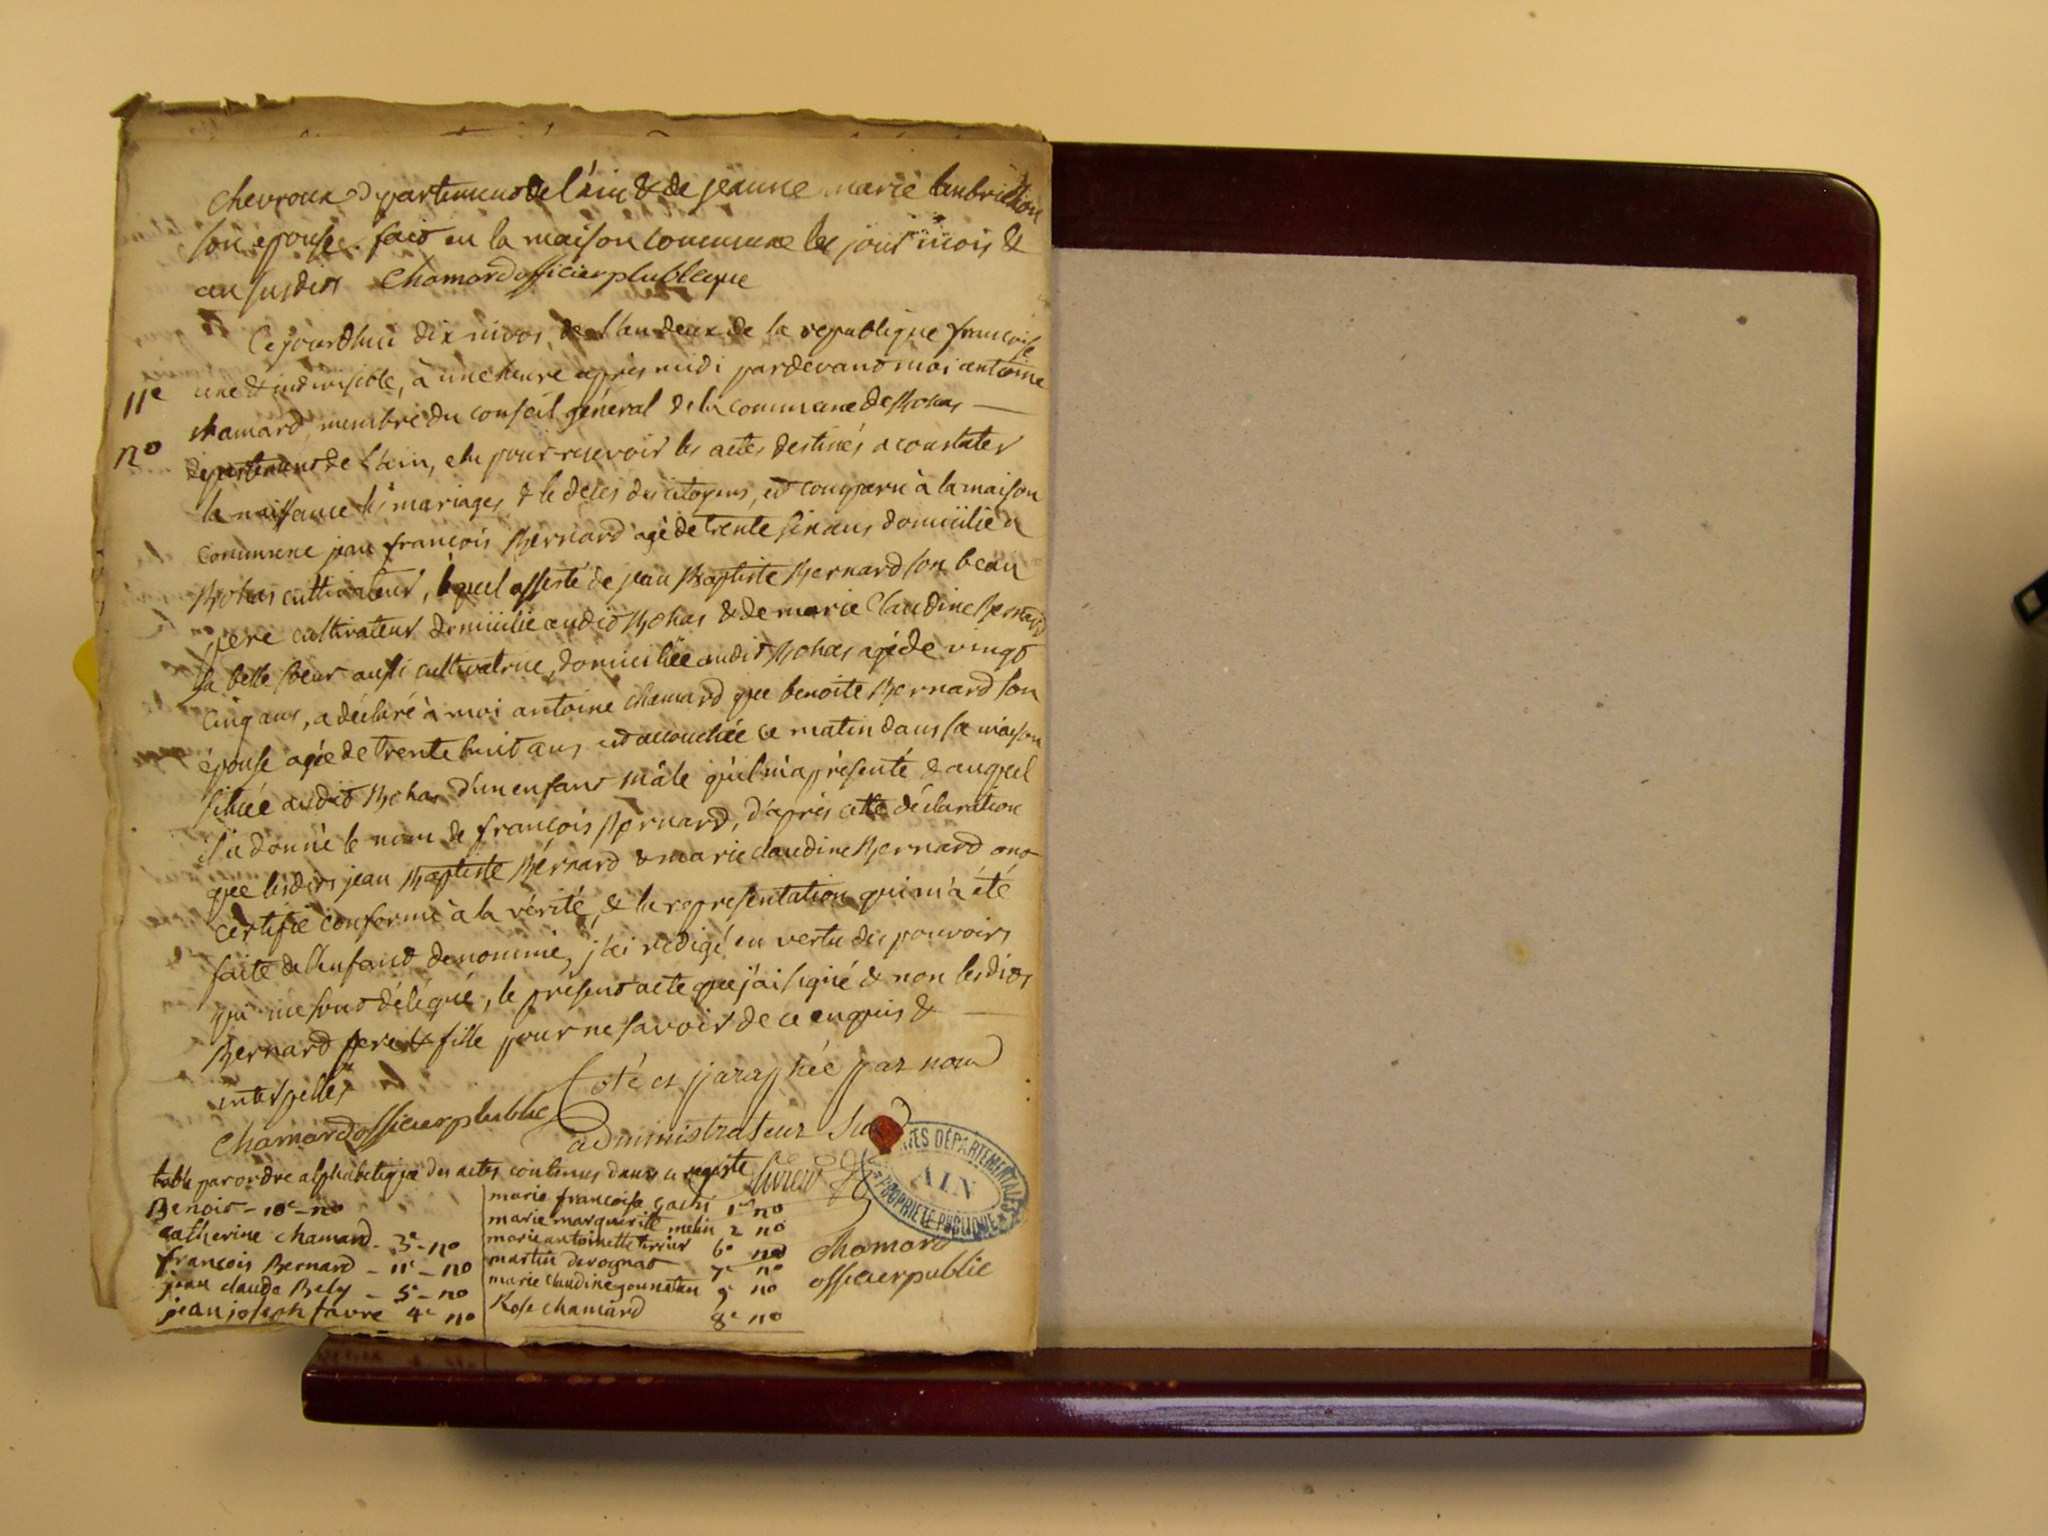 chevroux departement de l'ain & de jeanne marie
son epouse. fait en la maison commune les jour mois &
an susdits Chamard officier plubleque
Cejourdhui dix nivos, de l'an deux de la republique françoise
11e
une & indivisible, à une heure après midi pardevant moi antoine
chamard, membre du conseil général de la commune de Rohas
no
département de l'ain, elu pour recevoir les actes destinés a constater
la naissance les mariages, & le deces des citoyens, est comparu à la maison
commune jean françois Bernard agé de trente six ans domicilié a
Rohas cultivateur, lequel assisté de jean Baptiste Bernard son beau
pere cultivateur domicilié audit Rohas & de marie Claudine Bernard
sa belle soeur aussi cultivatrice, domiciliée audit Rohas agé de vingt
cinq ans, a déclaré à moi antoine chamard que benoite Bernard son
épouse agée de trente huit ans est accouchée ce matin dans sa maison
située audit Rohas d'un enfant mâle qu'il m'a présenté & auquel
il a donné le nom de françois Bernard, d'après cette déclaration
que lesdits jean Baptiste Bernard & marie claudine Bernard ont
certifié conforme à la vérité, & la representation qui m'a été
faite de l'enfant denommé, j'ai redigé en vertu des pouvoirs
qui me sont délégué, le présent acte que j'ai signé & non lesdits
Bernard pere & fille pour ne savoir de ce enquis &
interpellés
Chamard officier plublic
Coté et paraphée par nous
administrateur
table par ordre alphabetique des actes contenus dans ce registe
Benoit - 10e - no
catherine chamard - 3e - no
françois Bernard - 11e - no
jean claude Bely - 5e - no
jean joseph favre 4e no
marie françoise 1er no
marie marguerite 2 no
marie antoinette terrier 6e no
martin derognat 7e no
marie claudine 9e no
Rose chamard 8e no
chamard
officier public
ARCHIVES DÉPARTEMENTALES
AIN
PROPRIÉTÉ PUBLIQUE